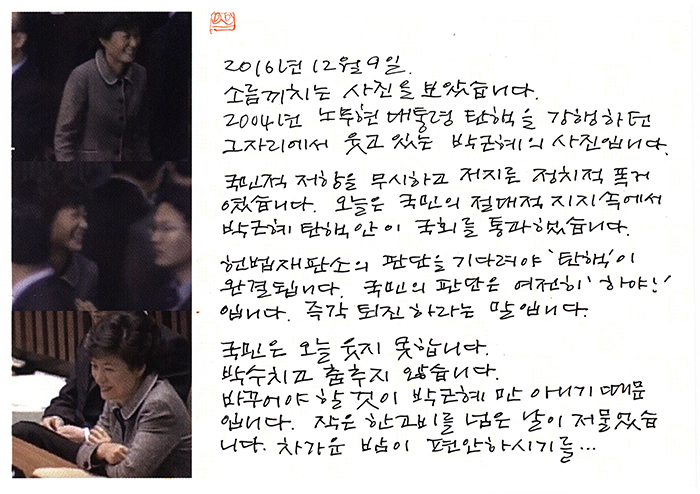 2016년 12월 9일.
소름끼치는 사진을 보았습니다.
2004년 노무현 대통령 탄핵을 강행하던
그자리에서 웃고 있는 박근혜의 사진입니다.
국민적 저항을 무시하고 저지른 정치적 폭거
였습니다. 오늘은 국민의 절대적 지지속에서
박근혜 탄핵안이 국회를 통과했습니다.
헌법재판소의 판단을 기다려야 '탄핵'이
완결됩니다. 국민의 판단은 여전히 '하야!'
입니다. 즉각 퇴진하라는 말입니다.
국민은 오늘 웃지 못합니다.
박수치고 춤추지 않습니다.
바꾸어야 할 것이 박근혜 만 아니기 때문
입니다. 작은 한고비를 넘은 날이 저물었습
니다. 차가운 밤이 편안하시기를...